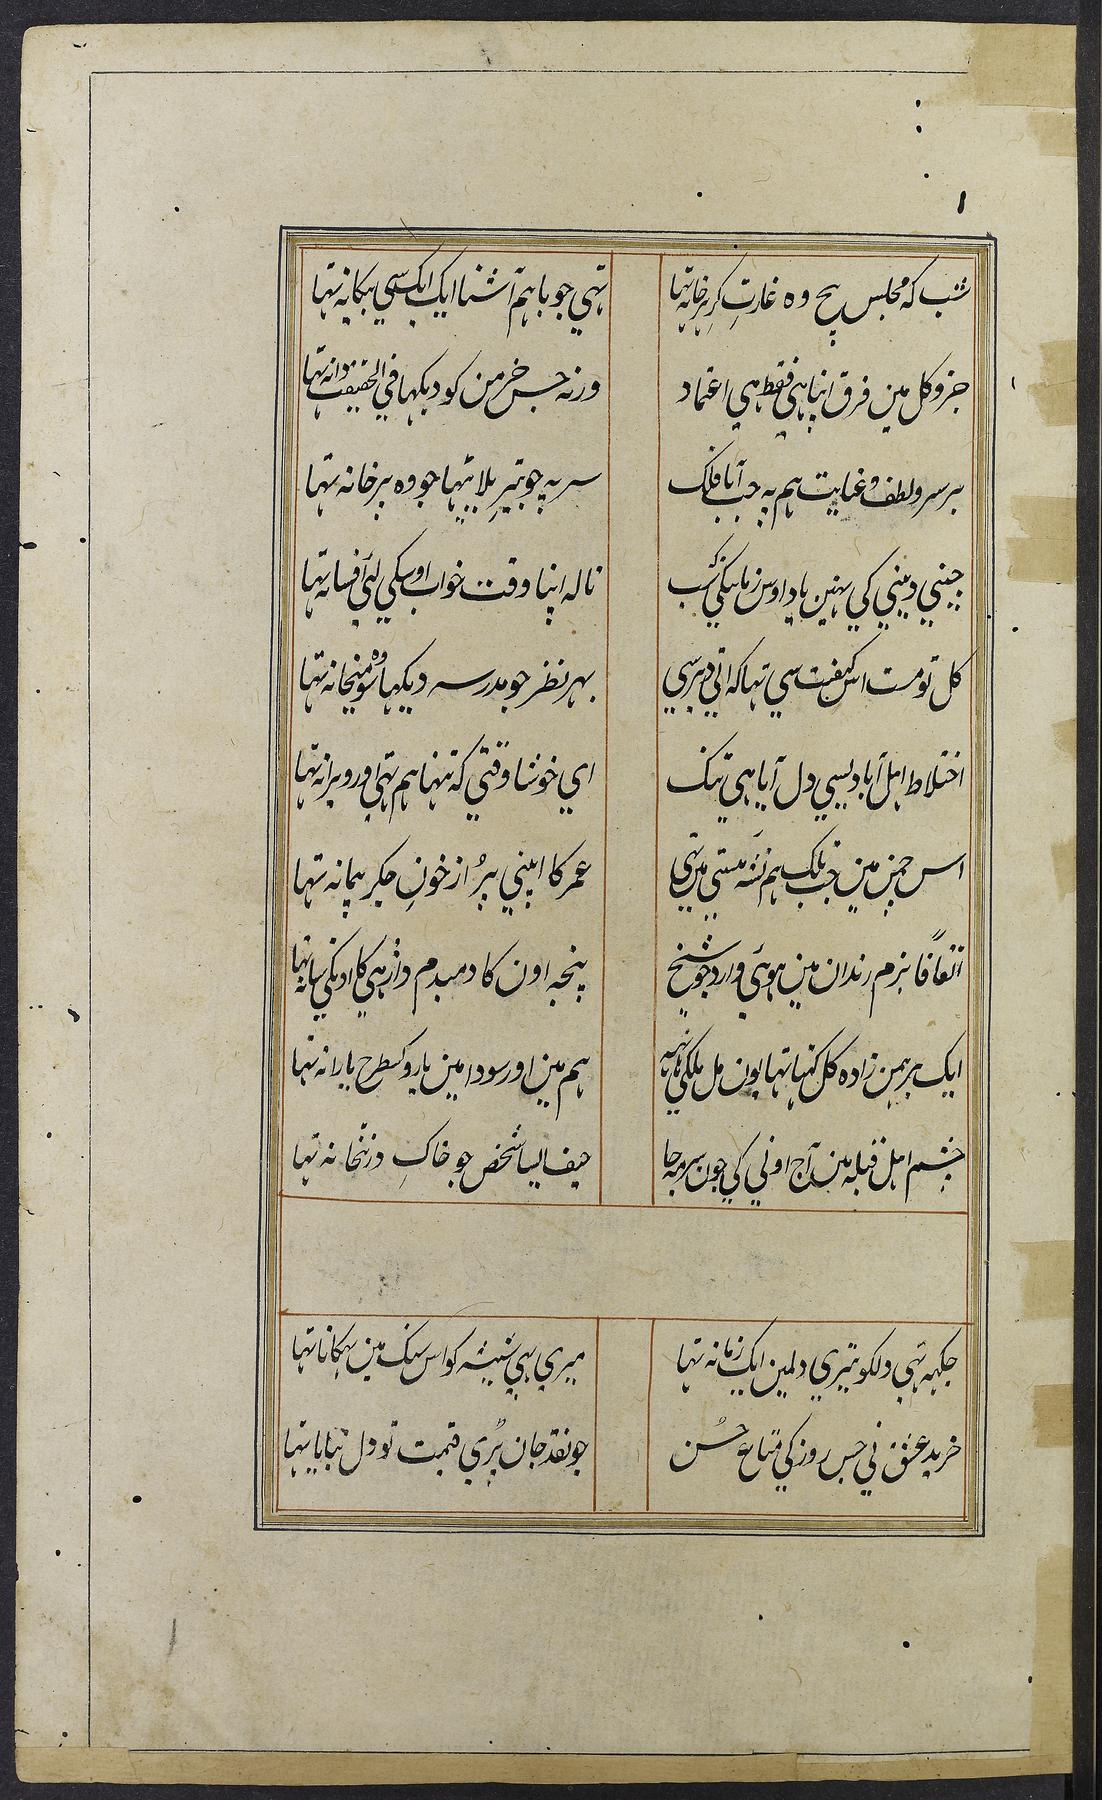 شب که مجلس بیچ وه غارت کر هر خانه تها
تهی جو باهم آشنا ایک ایک سی بیکانه تها
جز و کل مین فرق اپنا هی فقط هی اعتماد
ورنه جس خرمن کو دیکها فی الحقیقت دانه تها
بر سر و لطف و عنایت هم په جب آیا فلک
سر په جو تیر بلا بیٹها جو وه بر خانه تها
جینی دینی کی نهین یاد اوس زمانیکی کب
ناله اپنا وقت خواب اوسکی لئی افسانه تها
کل تو مست اس کیفیت سی تها که آتی دیر سی
بهر نظر جو مدرسه دیکها سو وه میخانه تها
اختلاط اهل آبادیسی دل آیا هی تنک
ای خوشا وقتی که تنها هم تهی اور ویرانه تها
اس چمن مین جب تلک هم نشۀ مستی مین تهی
عمر کا اپنی پُر از خونِ جکر پیمانه تها
اتفاقاً بزم رندان مین هوئی وارد جو شیخ
پنجه اون کا دمبدم داڑهی کا اونکی شانه تها
ایک برهمن زاده کل کہتا تها یون مل ملکی هاتهه
هم مین اور سودا مین یارو کسطرح یارانه تها
چشم اهل قبله مین آج اونی کی جون سرمه جا
حیف ایسا شخص جو خاکِ در بتخانه تها
جکهه تهی دلکو تیری دلمین ایک زمانه تها
میری بهی شیشه کو اس سنک مین ٹهکانا تها
خرید عشق نی جس روز کی متاع حُسن
جو نقد جان پڑی قیمت تو دل بیانا تها